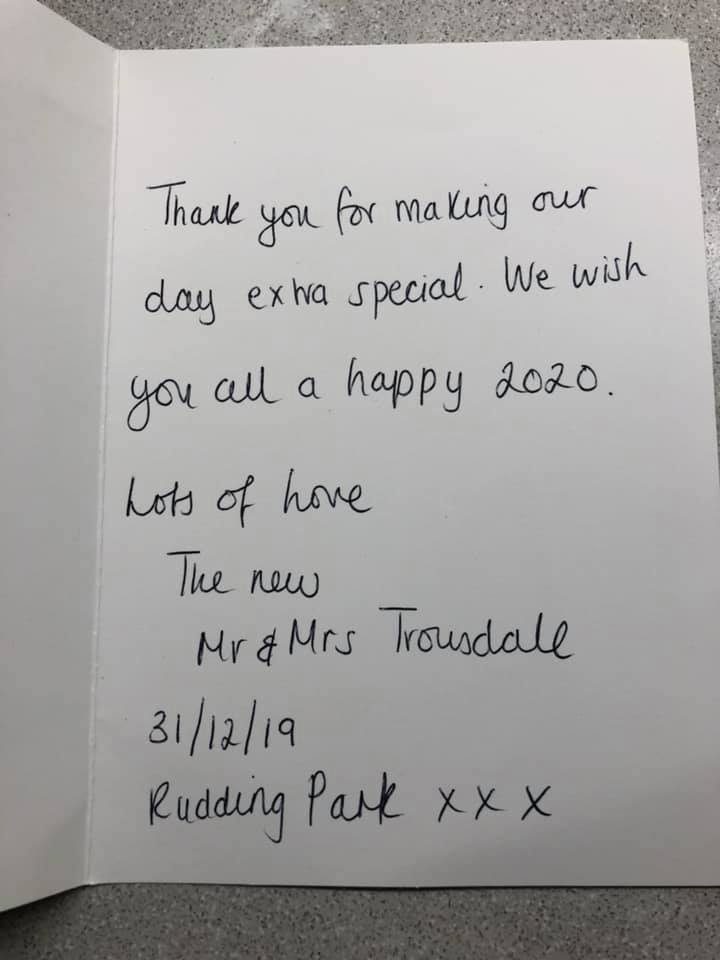 Thank you for making our
day extra special. We wish
you all a happy 2020.
Lots of love
The new
Mr & Mrs Trousdale
31/12/19
Rudding Park x x x